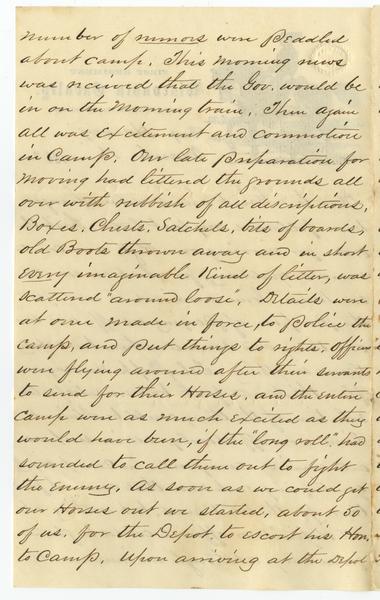 number of rumors were peddled
about camp. This morning news
was received that the Gov. would be
in on the morning train. Then again
all was excitement and commotion
in Camp. Our late preparation for
moving had littered the grounds all
over with rubbish of all discriptions,
Boxes, Chests, Satchels, bits of boards,
old Boots thrown away and in short
every imaginable Kind of litter, was
scattered "around loose". Details were
at once made in force, to Police the
camp, and put things to rights. Officers
were flying around after their servants
to send for their Horses, and the entire
camp were as much excited as they
would have been, if the "long roll" had
sounded to call them out to fight
the enemy. As soon as we could get
our Horses out we started, about 50
of us, for the Depot, to escort his Hon.
to Camp. Upon arriving at the Depot